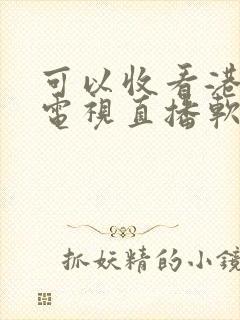 可以收看港
電視直播軟
抓妖精的小鏡